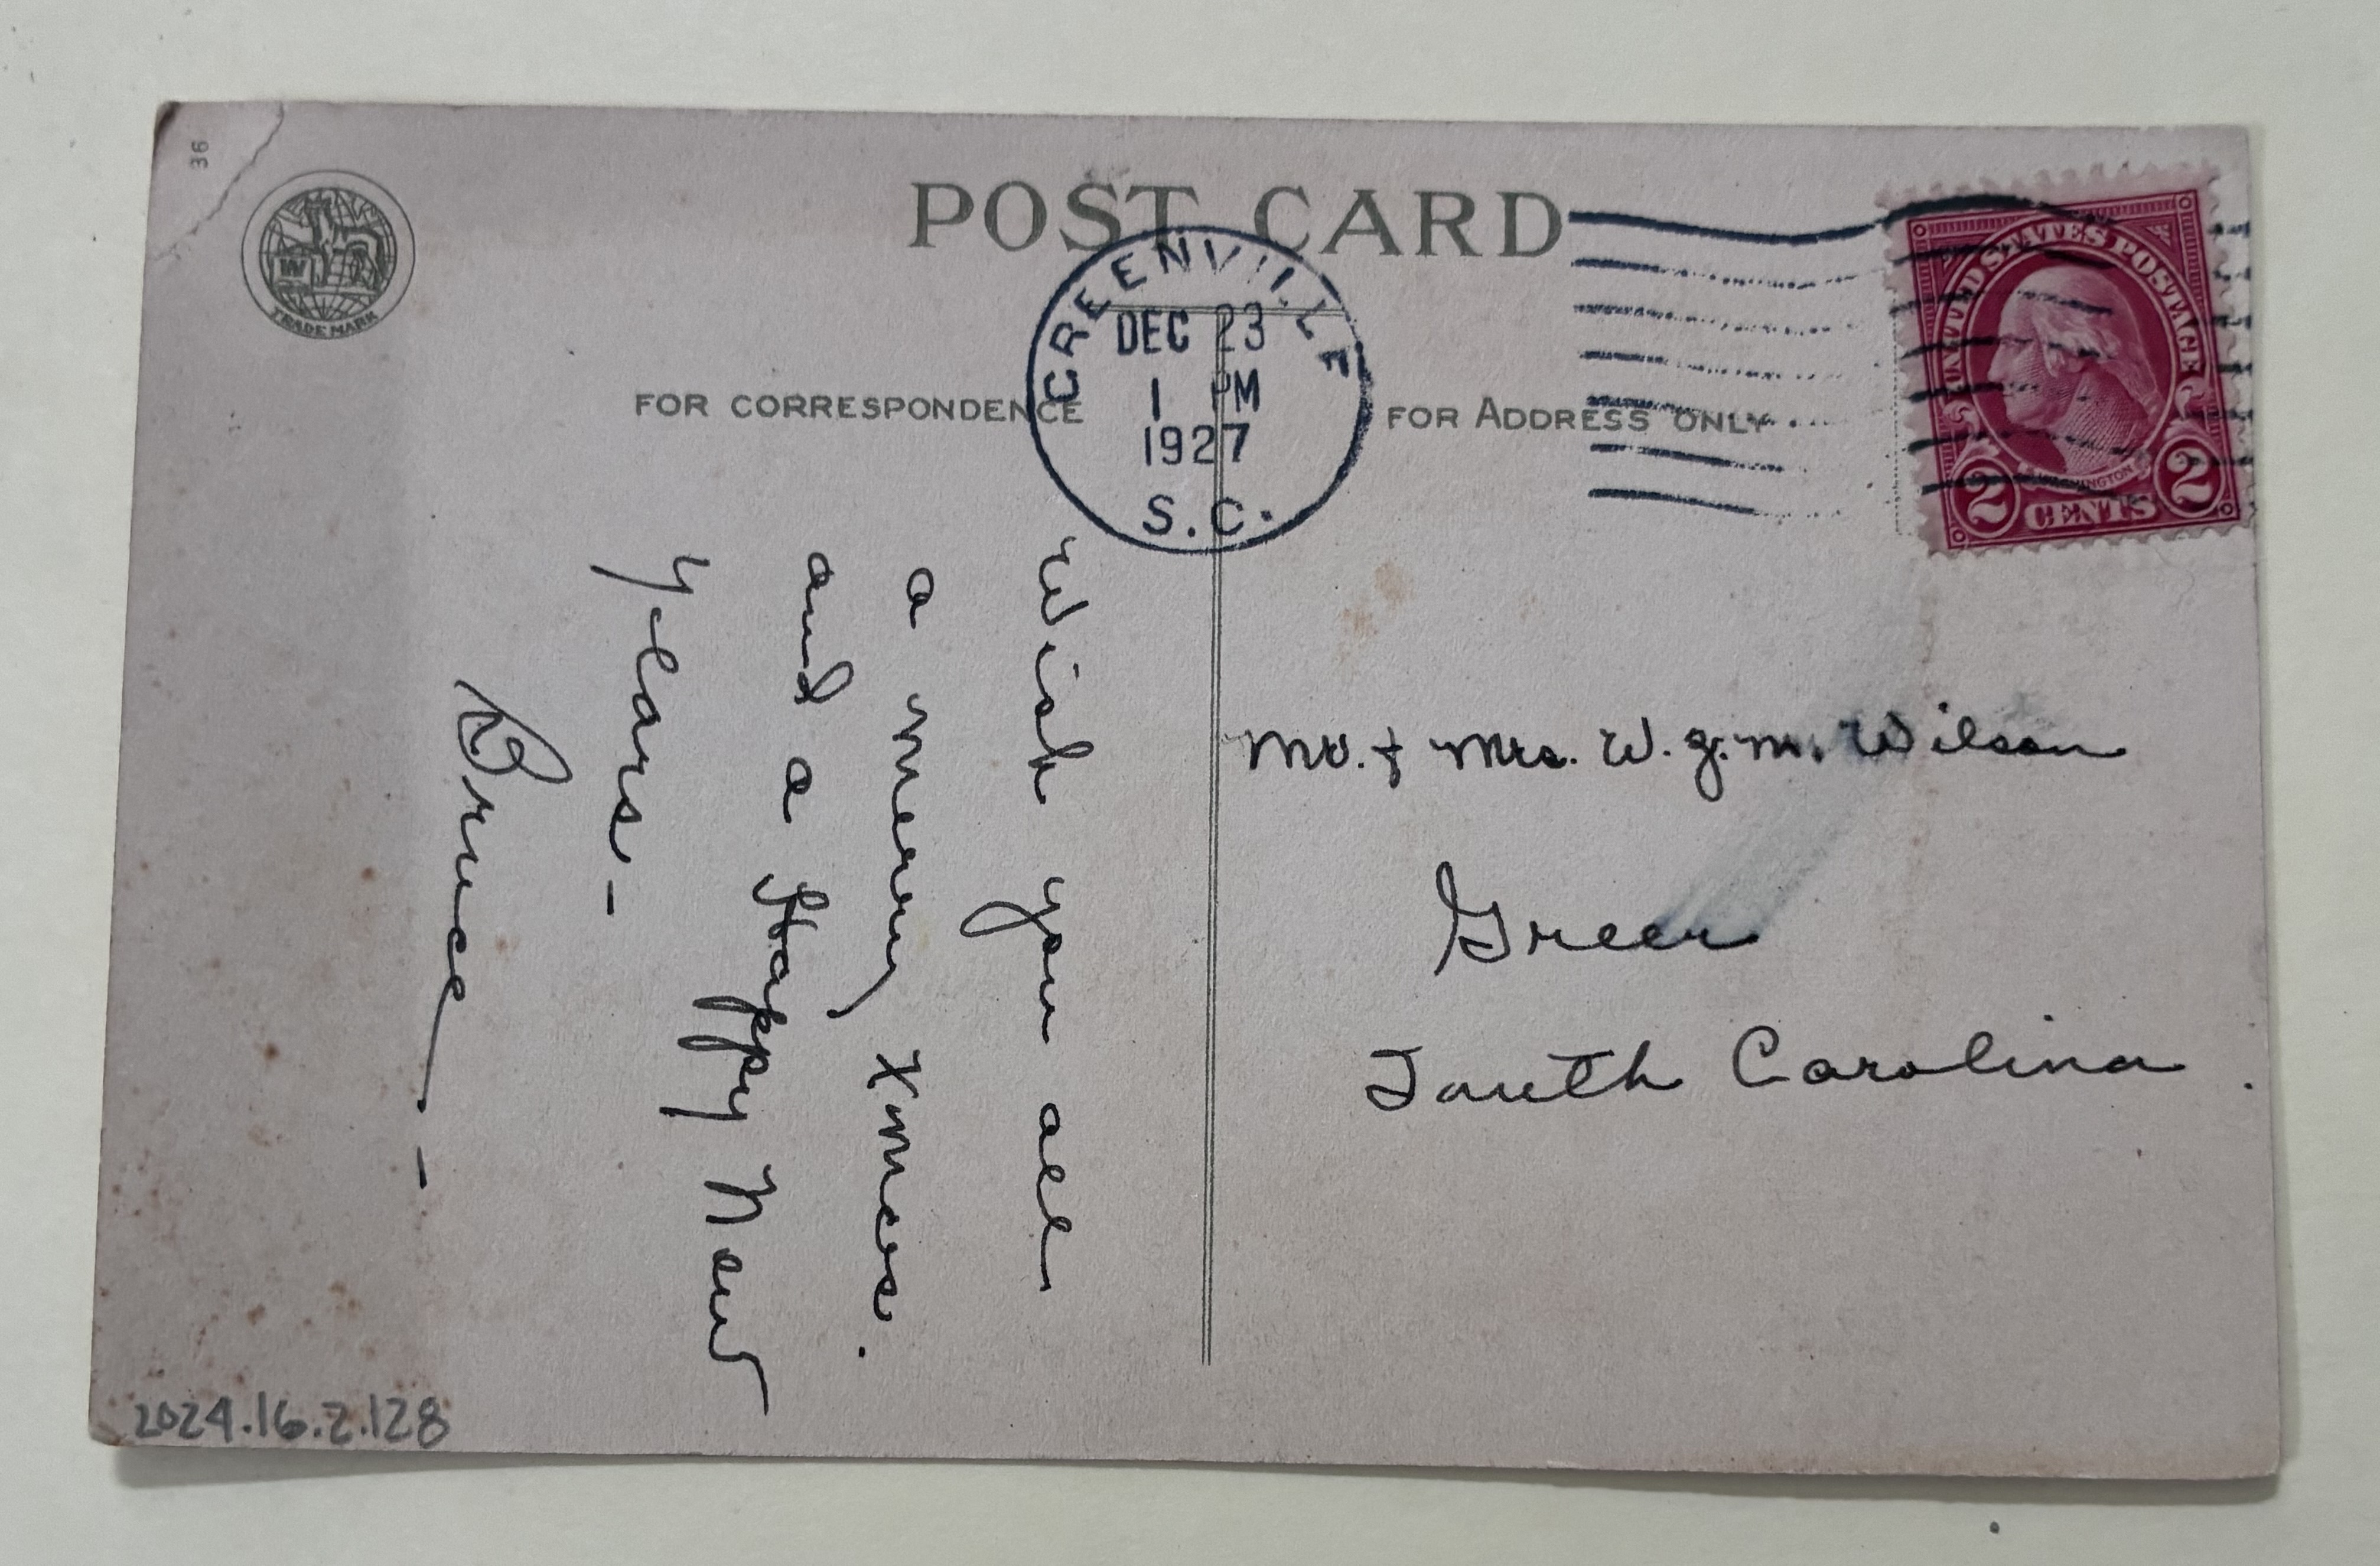 36
W
TRADE MARK
POST CARD
GREENVILLE
DEC 23
1 PM
1927
S.C.
UNITED STATES POSTAGE
WASHINGTON
2 CENTS 2
FOR CORRESPONDENCE
FOR ADDRESS ONLY
Wish you all
a merry Xmas.
and a Happy New
Years -
Bruce -
Mr. & Mrs. W. G. M. Wilson
Greer
South Carolina.
2024.16.2.128